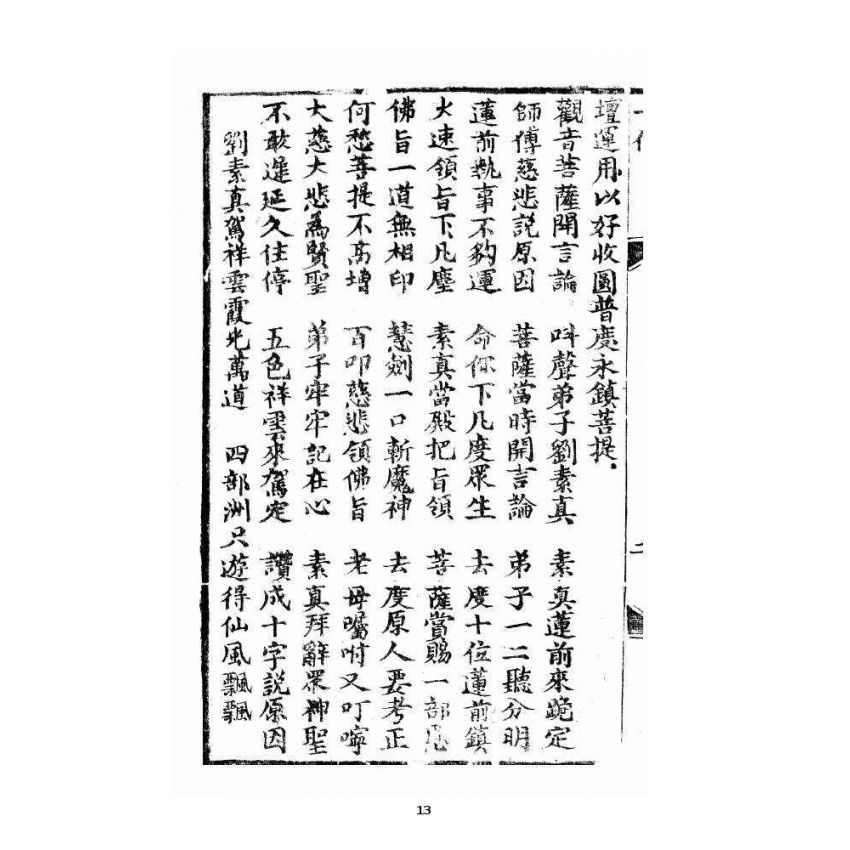 壇運用以好收圓普慶永鎮菩提.
觀音菩薩開言論 呌聲弟子劉素真 素真蓮前來跪定
師傅慈悲說原因 菩薩當時開言論 弟子一二聽分明
蓮前執事不夠運 命你下凡度眾生 去度十位蓮前鎮
火速領旨下凡塵 素真當殿把旨領 菩薩賞賜一部
佛旨一道無相印 慧劍一口斬魔神 去度原人要考正
何愁菩提不高增 百叩慈悲領佛旨 老母囑咐又叮嚀
大慈大悲為賢聖 弟子牢牢記在心 素真拜辭眾神聖
不敢遲延久住停 五色祥雲來駕定 讚成十字說原因
劉素真駕祥雲霞光萬道 四部洲只遊得仙風飄飄
二
13